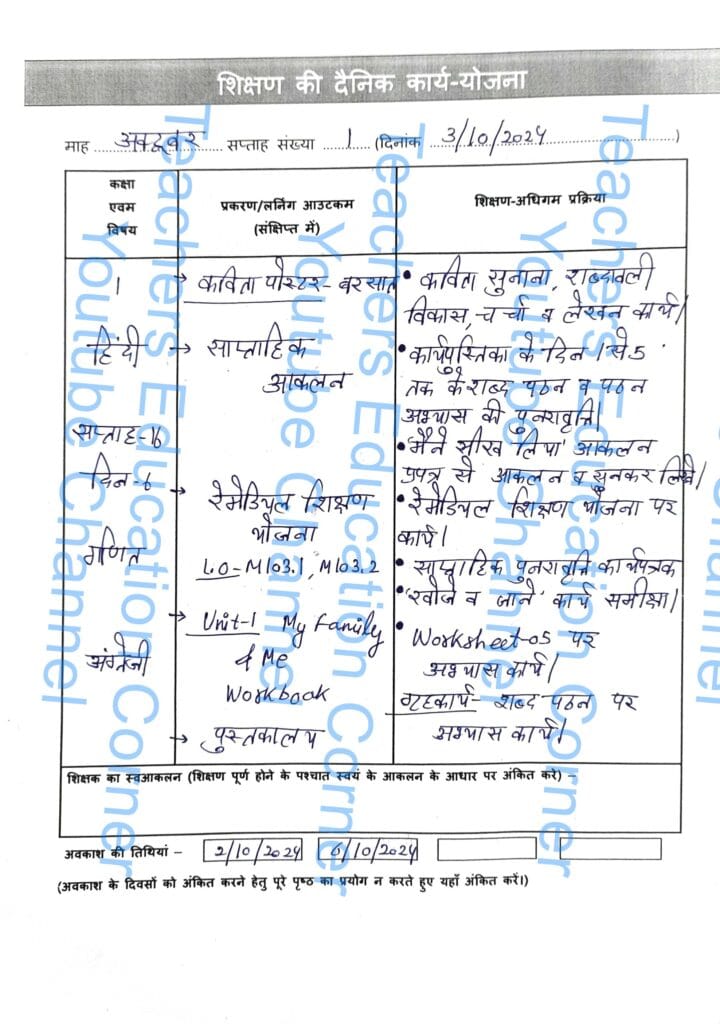 शिक्षण की दैनिक कार्य-योजना
माह अक्टूबर सप्ताह संख्या 1 (दिनांक 3/10/2024)
कक्षा एवम विषय
प्रकरण/लर्निंग आउटकम (संक्षिप्त में)
शिक्षण-अधिगम प्रक्रिया
1
हिंदी
सप्ताह-16
दिन-6
गणित
अंग्रेजी
→ कविता पोस्टर- बरसात
→ साप्ताहिक
आकलन
→ रेमेडियल शिक्षण
योजना
LO-M103.1, M103.2
→ Unit-1 My Family
& Me
Workbook
→ पुस्तकालय
• कविता सुनाना, शब्दावली
विकास, चर्चा व लेखन कार्य।
• कार्यपुस्तिका के दिन 1 से 5
तक के शब्द पठन व पठन
अभ्यास की पुनरावृत्ति।
• 'मैंने सीख लिया' आकलन
प्रपत्र से आकलन व सुनकर लिखें।
• रेमेडियल शिक्षण योजना पर
कार्य।
• साप्ताहिक पुनरावृत्ति कार्यपत्रक
'खोजें व जाने' कार्य समीक्षा।
• Worksheet-05 पर
अभ्यास कार्य।
गृहकार्य- शब्द पठन पर
अभ्यास कार्य।
शिक्षक का स्वआकलन (शिक्षण पूर्ण होने के पश्चात स्वयं के आकलन के आधार पर अंकित करे) –
अवकाश की तिथियां – 2/10/2024 6/10/2024
(अवकाश के दिवसों को अंकित करने हेतु पूरे पृष्ठ का प्रयोग न करते हुए यहाँ अंकित करें।)
Teachers Education Corner
Youtube Channel
Teachers Education Corner
Youtube Channel
Teachers Education Corner
Youtube Channel